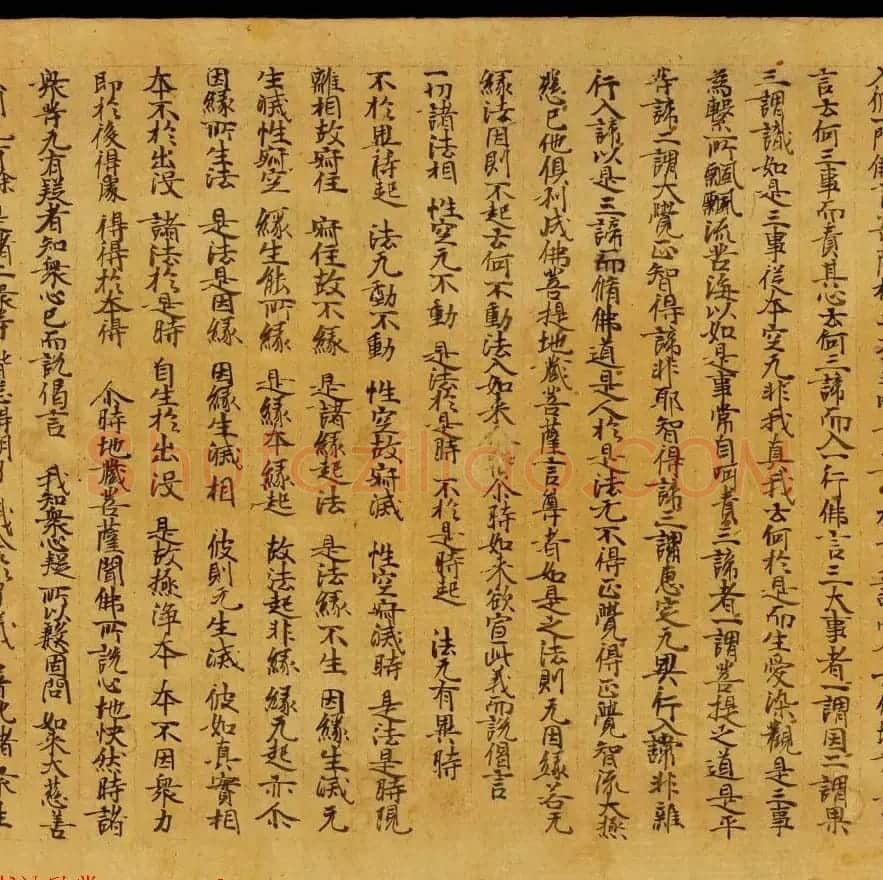 言云何三事而責其心云何三諦而入一行佛言三大事者一謂因二謂果
三謂識如是三事從本空无非我真我云何於是而生愛染觀是三事
為繫所飄飄流苦海以如是事常自呵責三諦者一謂菩提之道是平
等諦二謂大覺正智得諦非耶智得諦三謂惠定无異行入諦非雜
行入諦以是三諦而脩佛道是人於是法无不得正覺得正覺智流大極
慈已他俱利成佛菩提地藏菩薩言尊者如是之法則无因緣若无
緣法因則不起云何不動法入如来 尒時如来欲宣此義而說偈言
一切諸法相 性空无不動 是法於是時 不於是時起 法无有異時
不於異時起 法无動不動 性空故寂滅 性空寂滅時 是法是時現
離相故寂住 寂住故不緣 是諸緣起法 是法緣不生 因緣生滅无
生滅性寂空 緣生能所緣 是緣本緣起 故法起非緣 緣无起亦尒
因緣所生法 是法是因緣 因緣生滅相 彼則无生滅 彼如真實相
本不於出没 諸法於是時 自生於出没 是故極淨本 本不因衆力
即於後得處 得得於本得 尒時地藏菩薩聞佛所說心地快然時諸
衆等无有疑者知衆心已而說偈言 我知衆心疑 所以慇固問 如来大慈善
shufaziliao.COM